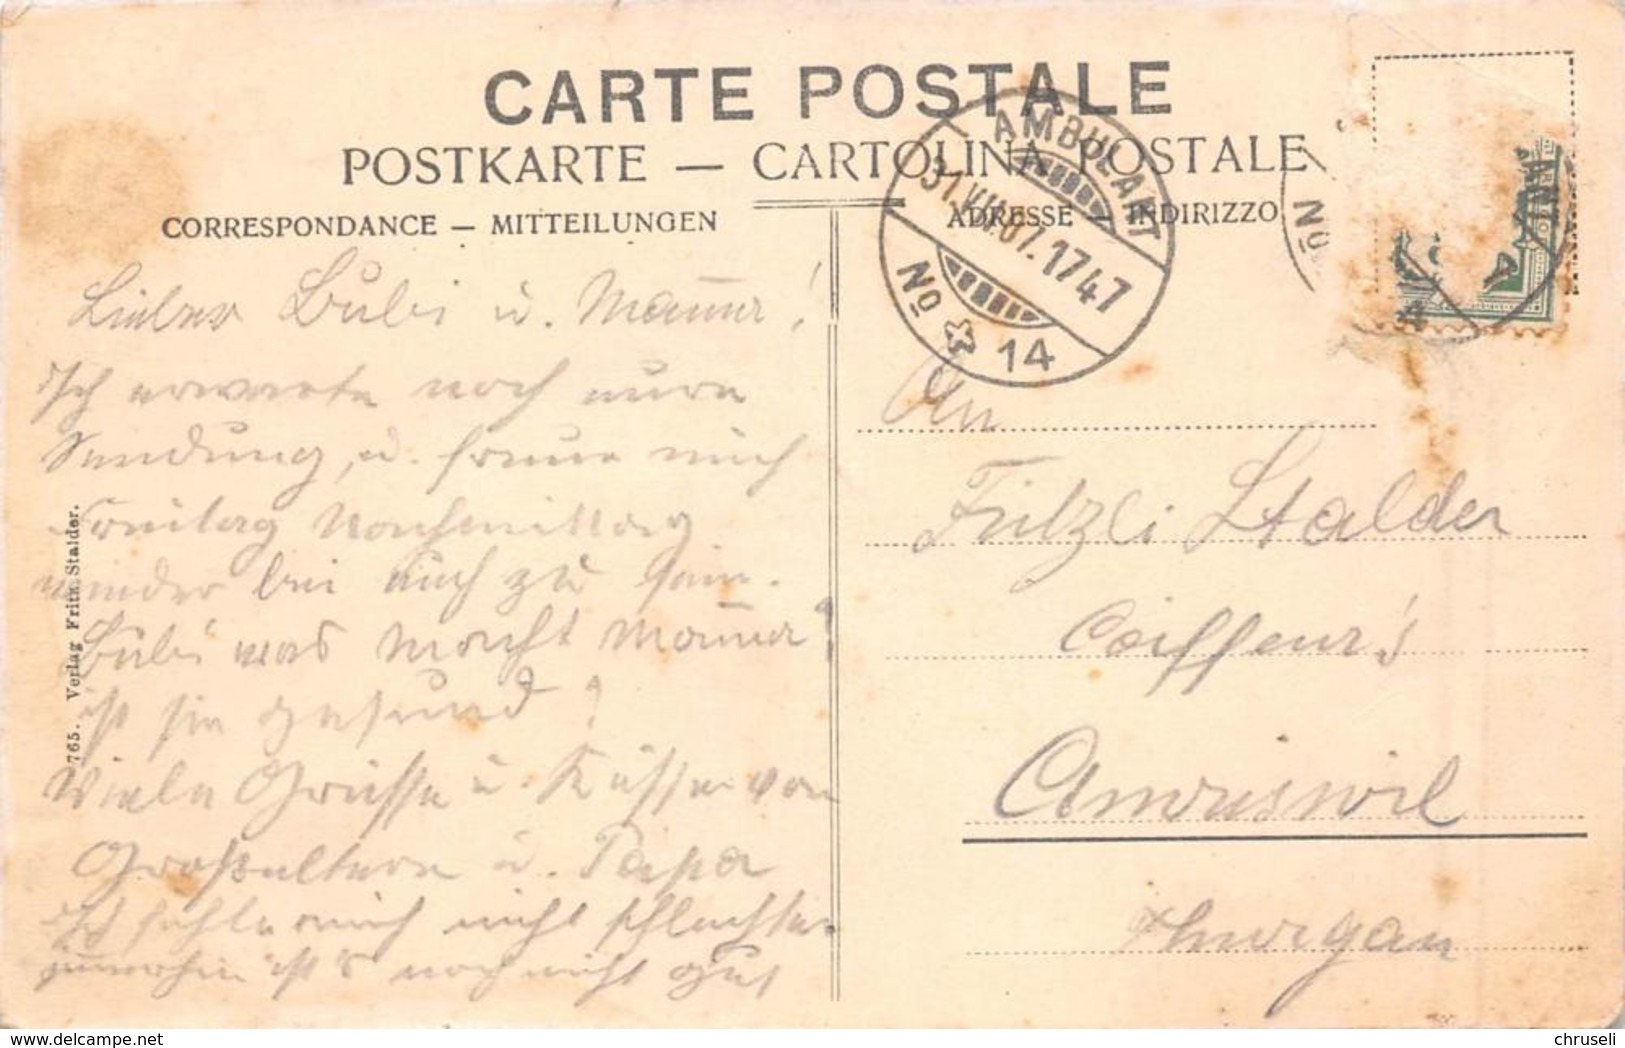 CARTE POSTALE
POSTKARTE — CARTOLINA POSTALE
CORRESPONDANCE — MITTEILUNGEN
ADRESSE — INDIRIZZO
AMBULANT
31.VII.07.1747
No 14
No
Lieber Bubi u. Mama!
Ich erwarte noch eure
Sendung, u. freue mich
Freitag Nachmittag
wieder bei euch zu sein.
Bubi was macht Mama?
ist sie gesund?
Viele Grüsse u. Küsse von
Grosseltern u. Papa
Ich fühle mich nicht schlechter
immerhin ist's noch nicht gut
765. Verlag Fritz Stalder.
An
Fritzli Stalder
Coiffeur's
Amriswil
Thurgau
chruseli